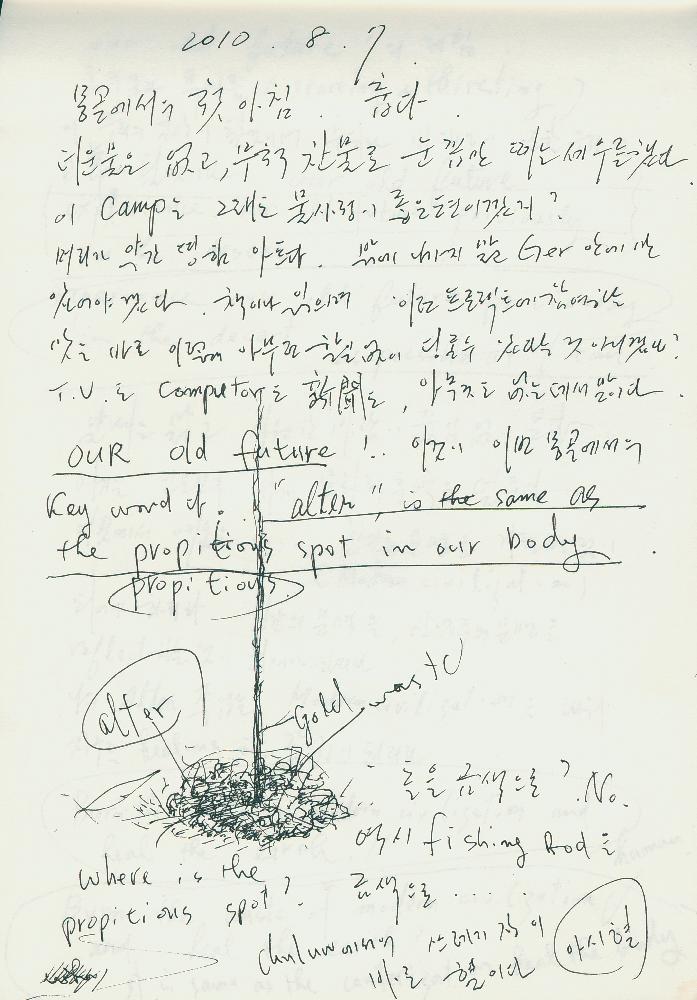 2010. 8. 7
몽골에서의 첫 아침. 춥다.
더운물은 없고, 부득 찬물로 눈꼽만 떼는 세수를 했다
이 Camp는 그래도 물사정이 좋은편이겠지?
머리가 약간 띵함 아프다. 밖에 나가지 말고 Ger 안에만
있어야겠다. 책이나 읽으며 이런 프로젝트에 참여하는
맛은 바로 이렇게 아무런 할일 없이 딩굴수 있다는 것 아니겠나?
T.V.도 Computor도 新聞도, 아무것도 없는데서 말이다.
OUR old future!.. 이것이 이번 몽골에서의
Key word다. "alter", is the same as
the propitious spot in our body
propitious
alter
Gold
돌을 금색으로? No.
역시 fishing Rod를
금색으로....
where is the
propitious spot?
쓰레기장이
바로 혈이다
아시혈